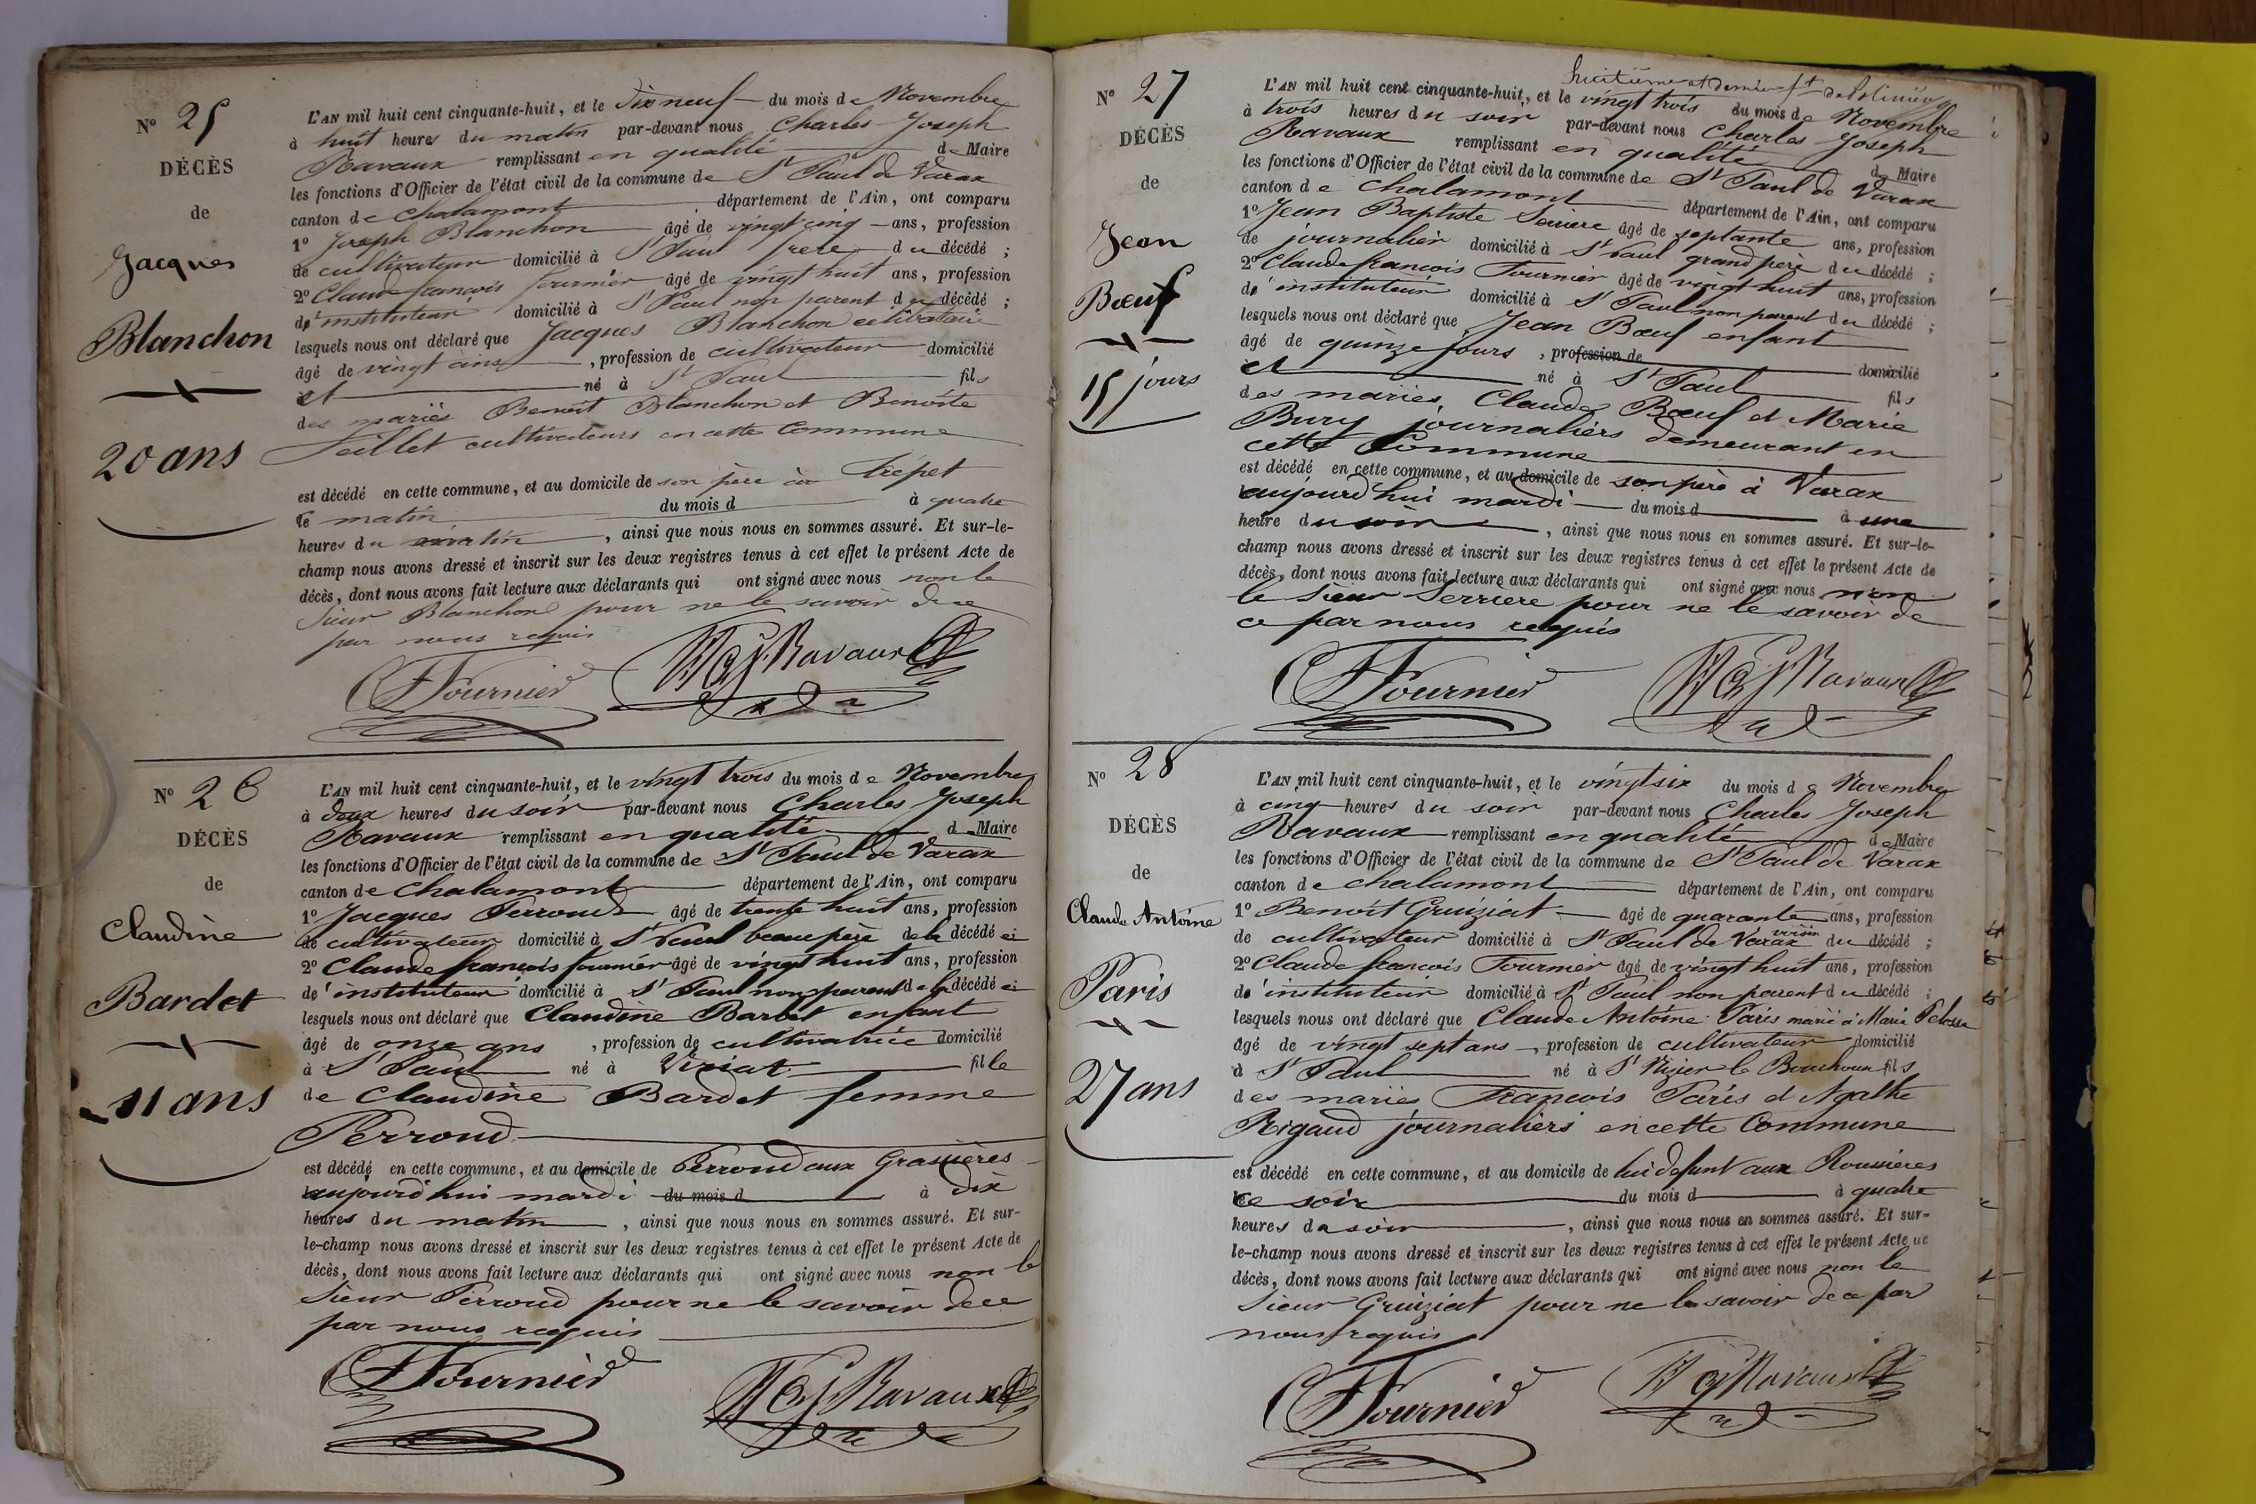 N° 25
DÉCÈS
de
Jacques
Blanchon
20 ans
L'AN mil huit cent cinquante-huit, et le dix neuf du mois de Novembre
à huit heures du matin par-devant nous Charles Joseph
Ravaux remplissant en qualité de Maire
les fonctions d'Officier de l'état civil de la commune de St Paul de Varax
canton de Chalamont département de l'Ain, ont comparu
1° Joseph Blanchon âgé de vingt cinq ans, profession
de cultivateur domicilié à St Paul frere du décédé ;
2° Claude françois fournier âgé de vingt huit ans, profession
d'instituteur domicilié à St Paul non parent du décédé ;
lesquels nous ont déclaré que Jacques Blanchon celibataire
âgé de vingt ans, profession de cultivateur domicilié
et né à St Paul fils
des mariés Benoit Blanchon et Benoite
cultivateurs en cette Commune
est décédé en cette commune, et au domicile de son père au Trépet
ce matin du mois d à quatre
heures du matin, ainsi que nous nous en sommes assuré. Et sur-le-
champ nous avons dressé et inscrit sur les deux registres tenus à cet effet le présent Acte de
décès, dont nous avons fait lecture aux déclarants qui ont signé avec nous non le
sieur Blanchon pour ne le savoir de ce
par nous requis
Fournier Ravaux
N° 26
DÉCÈS
de
Claudine
Bardet
11 ans
L'AN mil huit cent cinquante-huit, et le vingt trois du mois de Novembre
à deux heures du soir par-devant nous Charles Joseph
Ravaux remplissant en qualité de Maire
les fonctions d'Officier de l'état civil de la commune de St Paul de Varax
canton de Chalamont département de l'Ain, ont comparu
1° Jacques Perroud âgé de trente huit ans, profession
de cultivateur domicilié à St Paul beau père de la décédé
2° Claude françois fournier âgé de vingt huit ans, profession
d'instituteur domicilié à St Paul non parent de la décédé
lesquels nous ont déclaré que Claudine Bardet enfant
âgé de onze ans, profession de cultivatrice domicilié
à St Paul né à Viriat fille
de Claudine Bardet femme
Perroud
est décédé en cette commune, et au domicile de Perroud aux Grassières
aujourd'hui mardi du mois d à dix
heures du matin, ainsi que nous nous en sommes assuré. Et sur-
le-champ nous avons dressé et inscrit sur les deux registres tenus à cet effet le présent Acte de
décès, dont nous avons fait lecture aux déclarants qui ont signé avec nous non le
sieur Perroud pour ne le savoir de ce
par nous requis
Fournier Ravaux
huitième et dernier
N° 27
DÉCÈS
de
Jean
Bœuf
15 jours
L'AN mil huit cent cinquante-huit, et le vingt trois du mois de Novembre
à trois heures du soir par-devant nous Charles Joseph
Ravaux remplissant en qualité de Maire
les fonctions d'Officier de l'état civil de la commune de St Paul de Varax
canton de Chalamont département de l'Ain, ont comparu
1° Jean Baptiste Serriere âgé de septante ans, profession
de journalier domicilié à St Paul grand père du décédé ;
2° Claude françois Fournier âgé de vingt huit ans, profession
d'instituteur domicilié à St Paul non parent du décédé ;
lesquels nous ont déclaré que Jean Bœuf enfant
âgé de quinze jours, profession de domicilié
et né à St Paul fils
des mariés Claude Bœuf et Marie
Bury journaliers demeurant en
cette Commune
est décédé en cette commune, et au domicile de son père à Varax
aujourd'hui mardi du mois d à une
heure du soir, ainsi que nous nous en sommes assuré. Et sur-le-
champ nous avons dressé et inscrit sur les deux registres tenus à cet effet le présent Acte de
décès, dont nous avons fait lecture aux déclarants qui ont signé avec nous non
le sieur Serriere pour ne le savoir de
ce par nous requis
Fournier Ravaux
N° 28
DÉCÈS
de
Claude Antoine
Paris
27 ans
L'AN mil huit cent cinquante-huit, et le vingt six du mois de Novembre
à cinq heures du soir par-devant nous Charles Joseph
Ravaux remplissant en qualité de Maire
les fonctions d'Officier de l'état civil de la commune de St Paul de Varax
canton de Chalamont département de l'Ain, ont comparu
1° Benoit Gruiziat âgé de quarante ans, profession
de cultivateur domicilié à St Paul de Varax voisin du décédé ;
2° Claude francois Fournier âgé de vingt huit ans, profession
d'instituteur domicilié à St Paul non parent du décédé ;
lesquels nous ont déclaré que Claude Antoine Paris marié à Marie
âgé de vingt sept ans, profession de cultivateur domicilié
à St Paul né à St Nizier le Bouchoux fils
des mariés François Paris et Agathe
Rigaud journaliers en cette Commune
est décédé en cette commune, et au domicile de lui defunt aux Roussieres
ce soir du mois d à quatre
heures du soir, ainsi que nous nous en sommes assuré. Et sur-
le-champ nous avons dressé et inscrit sur les deux registres tenus à cet effet le présent Acte de
décès, dont nous avons fait lecture aux déclarants qui ont signé avec nous non le
sieur Gruiziat pour ne le savoir de ce par
nous requis
Fournier Ravaux